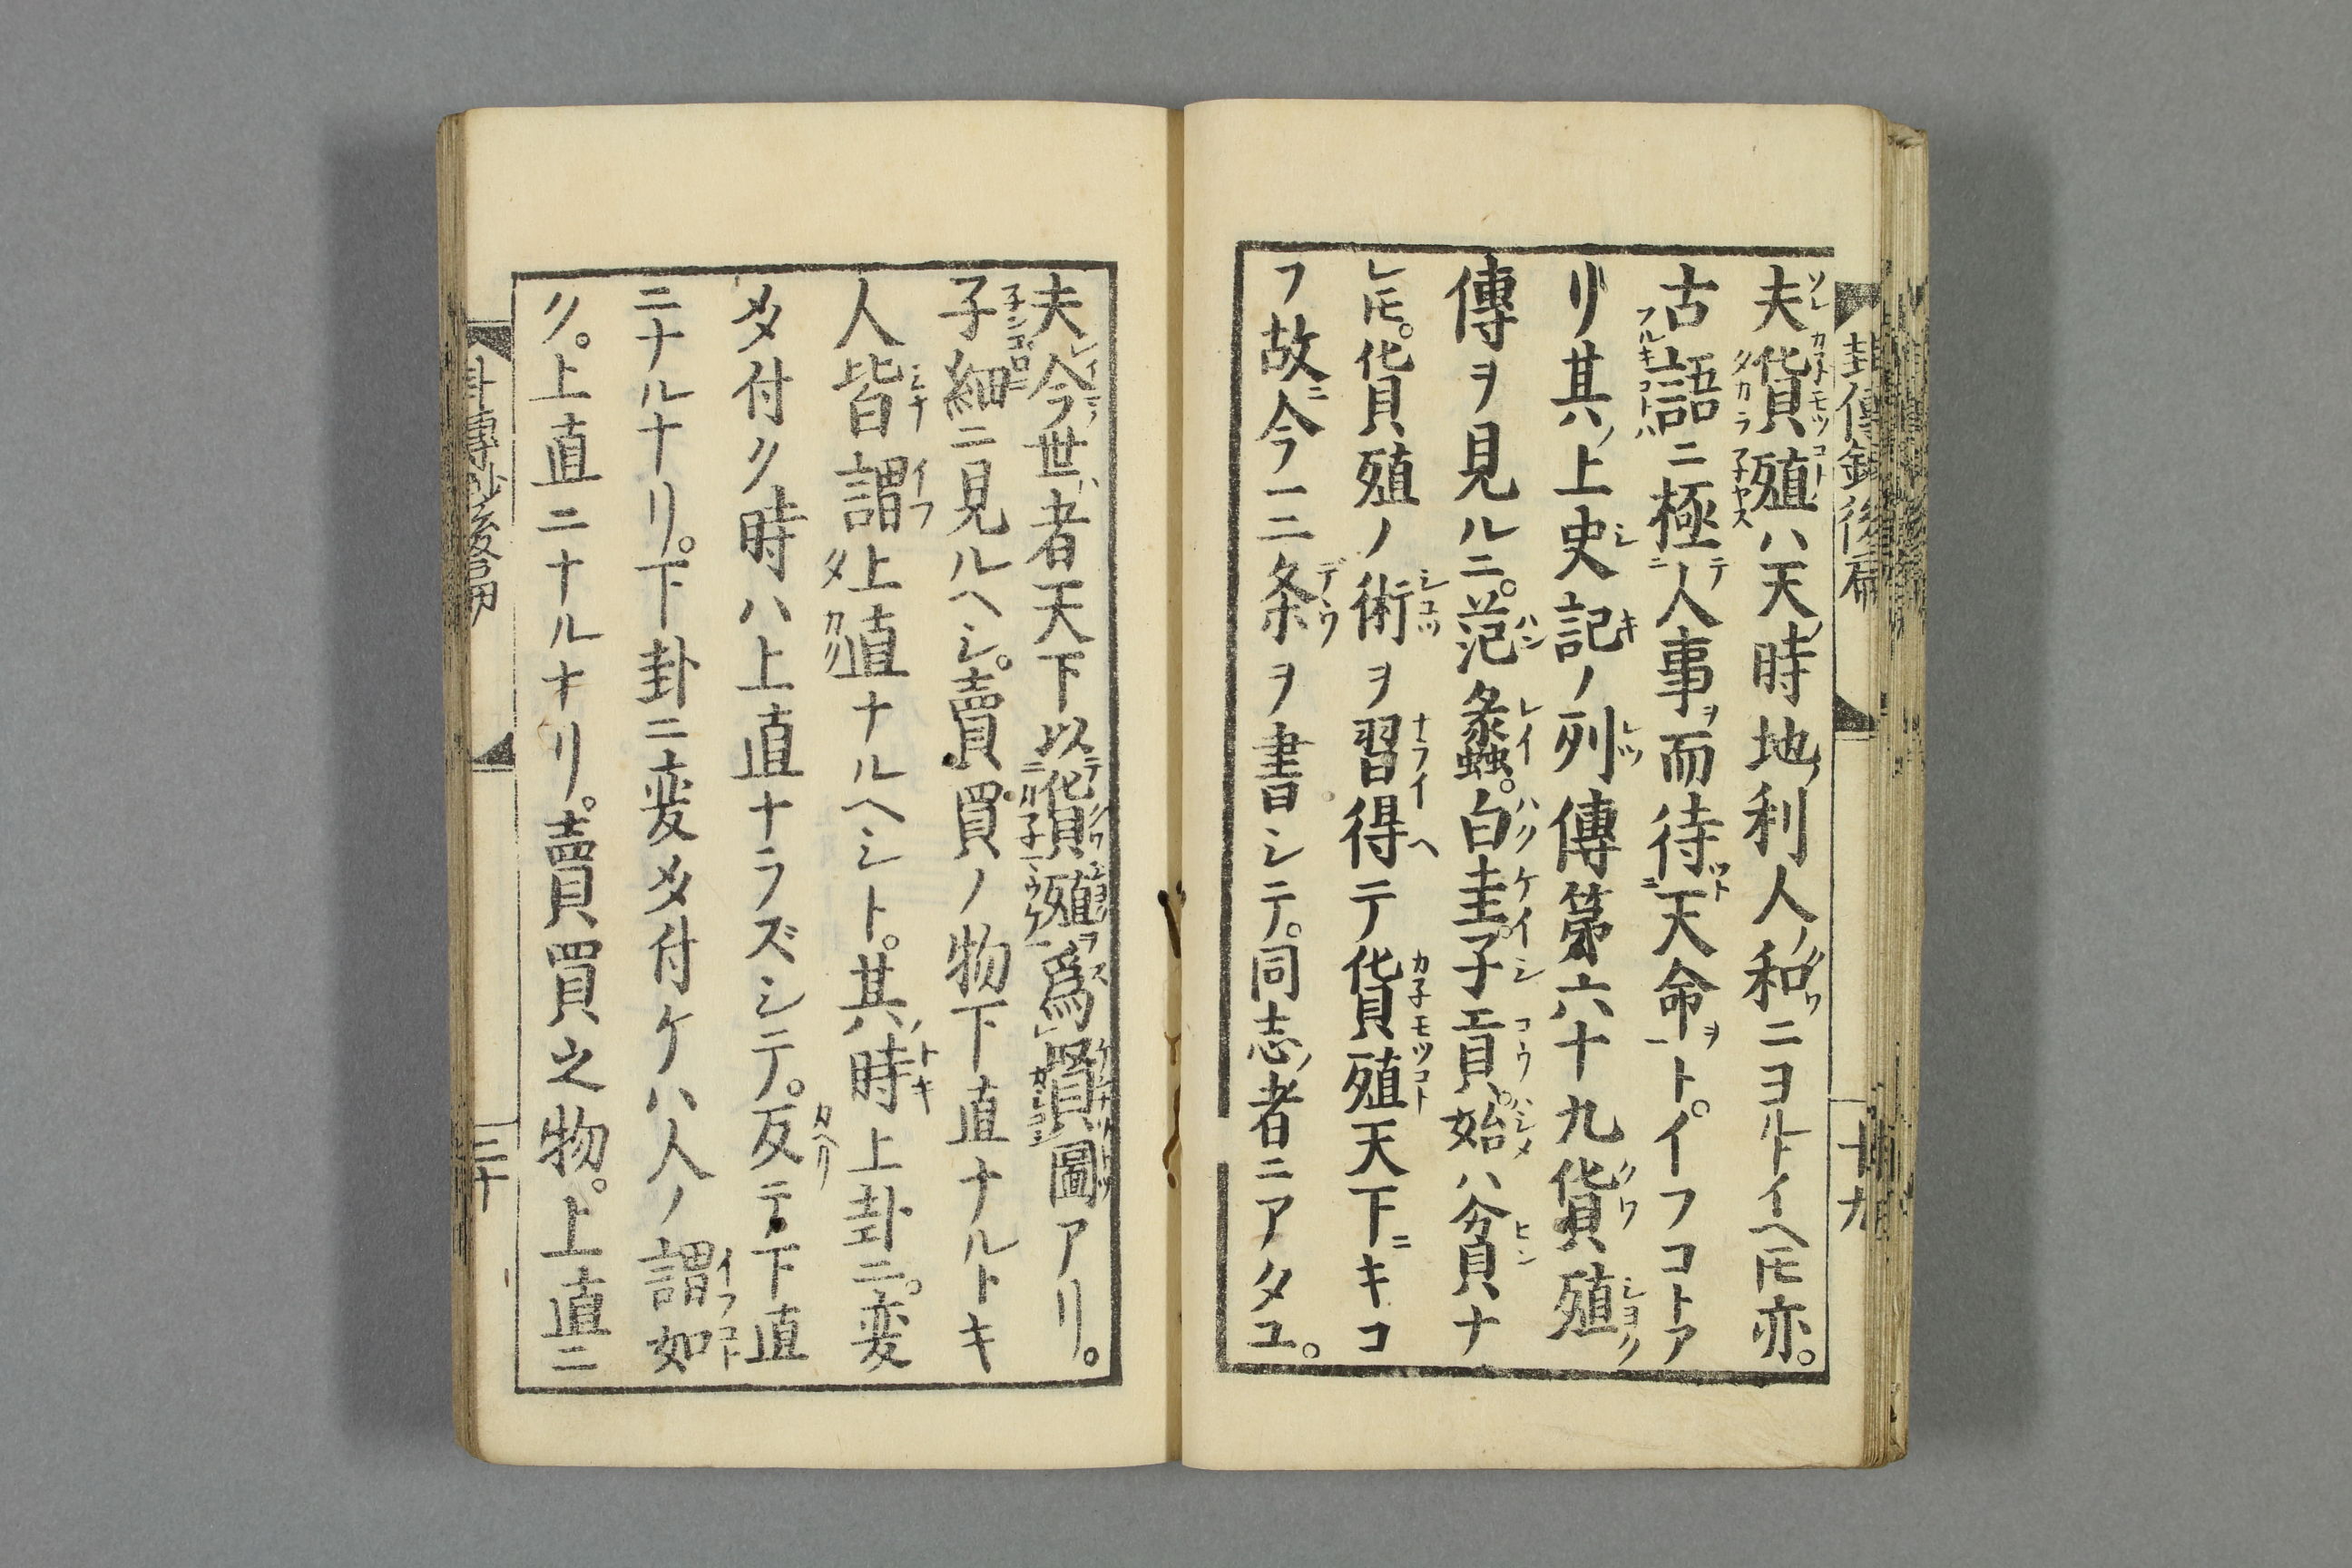 夫貨殖ハ天ノ時地ノ利人ノ和ニヨルトイヘ𪜈亦。
古語ニ極人事ヲ而待天命ヲトイフコトア
リ其ノ上史記ノ列傳第六十九貨殖
傳ヲ見ルニ。范蠡。白圭。子貢。始ハ貧ナ
レ𪜈。貨殖ノ術ヲ習得テ貨殖天下ニキコ
フ故ニ今一二条ヲ書シテ。同志ノ者ニアタユ。
卦傳鈔後扁
十九
夫今世者天下以貨殖為圖アリ。
子細ニ見ルヘシ。賣買ノ物下直ナルトキ
人皆謂上直ナルヘシト。其時上卦ニ。変
爻付ク時ハ上直ナラズシテ。反テ下直
ニナルナリ。下卦ニ変爻付ケハ人ノ謂如
ク。上直ニナルナリ。賣買之物。上直ニ
卦傳鈔後扁
二十